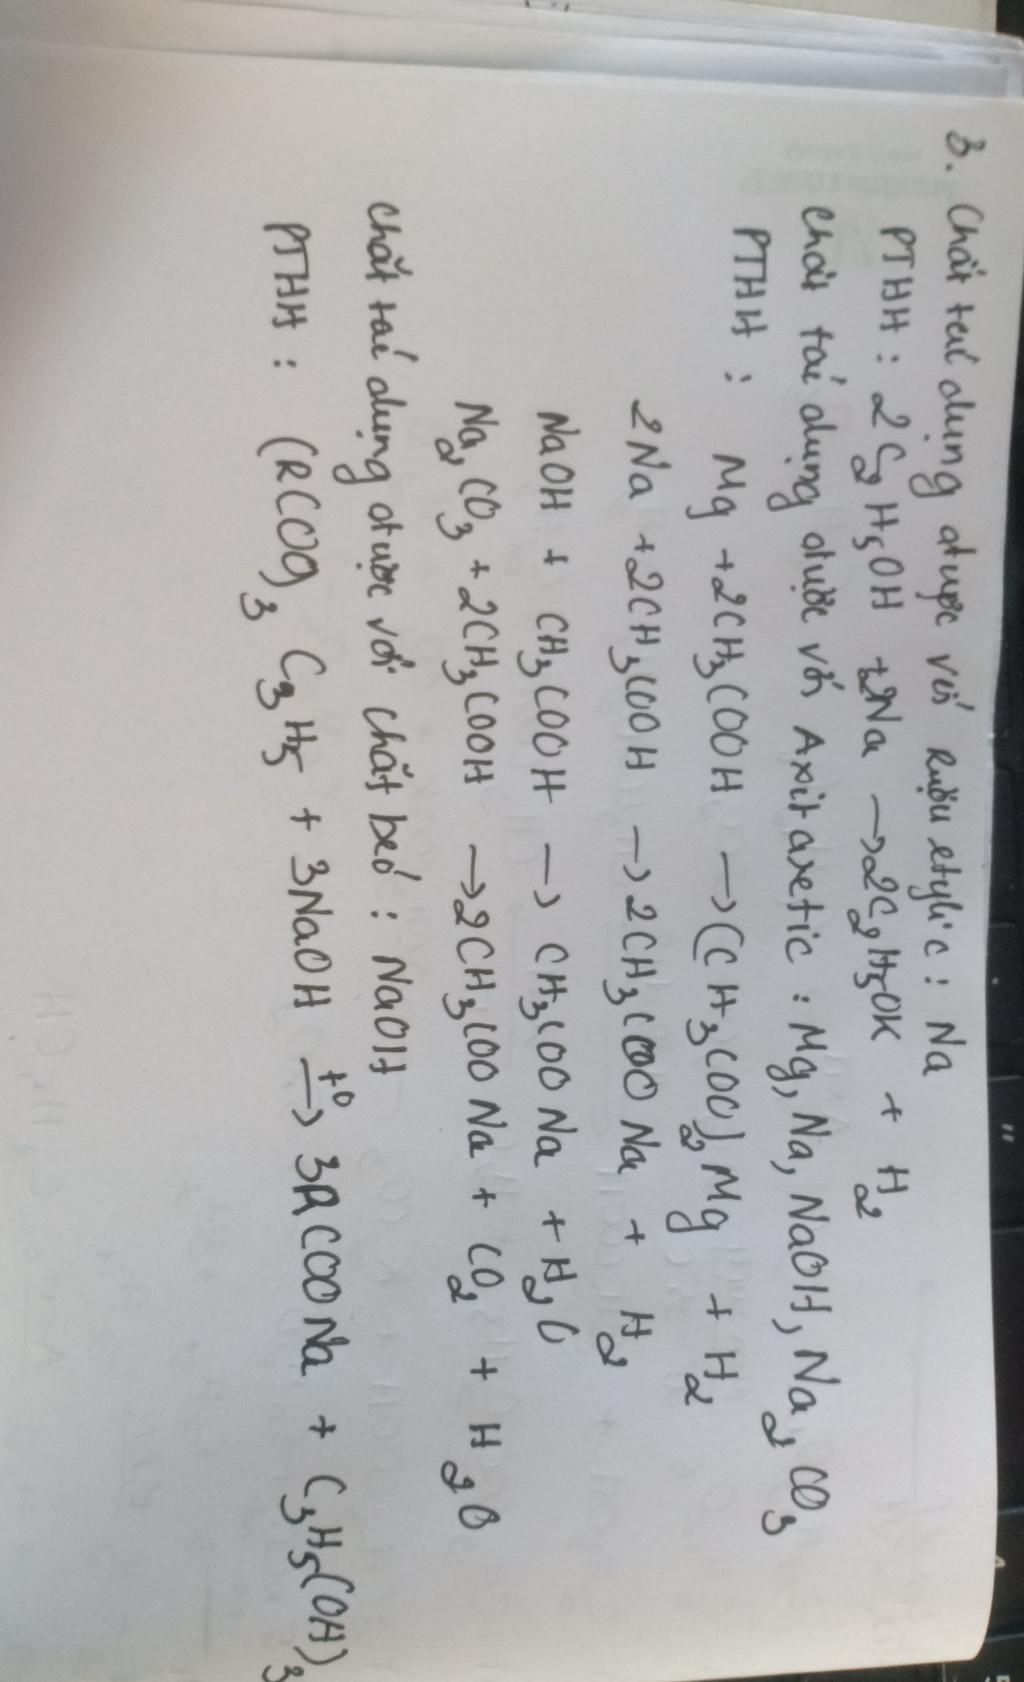 3. Chất tác dụng được với Rượu etylic : Na
PTHH : 2C₂H₅OH + 2Na → 2C₂H₅OK + H₂
Chất tác dụng được với Axit axetic : Mg, Na, NaOH, Na₂CO₃
PTHH : Mg + 2CH₃COOH → (CH₃COO)₂Mg + H₂
2Na + 2CH₃COOH → 2CH₃COONa + H₂
NaOH + CH₃COOH → CH₃COONa + H₂O
Na₂CO₃ + 2CH₃COOH → 2CH₃COONa + CO₂ + H₂O
Chất tác dụng được với chất béo : NaOH
PTHH : (RCOO)₃C₃H₅ + 3NaOH →(t⁰) 3RCOONa + C₃H₅(OH)₃